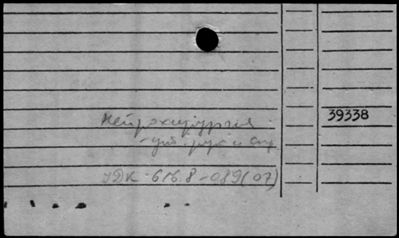 39338
Нейрохирургия
- уч. рук. и сп.
УДК 616.8-089(07)